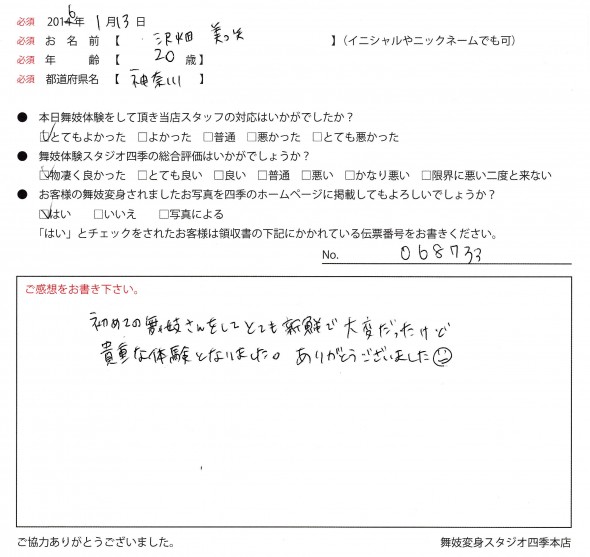 必須 2016年 1月13日
必須 お名前【 沢畑 美咲 】(イニシャルやニックネームでも可)
必須 年齢【 20 歳】
必須 都道府県名【 神奈川 】
● 本日舞妓体験をして頂き当店スタッフの対応はいかがでしたか?
☑とてもよかった □よかった □普通 □悪かった □とても悪かった
● 舞妓体験スタジオ四季の総合評価はいかがでしょうか?
☑物凄く良かった □とても良い □良い □普通 □悪い □かなり悪い □限界に悪い二度と来ない
● お客様の舞妓変身されましたお写真を四季のホームページに掲載してもよろしいでしょうか?
☑はい □いいえ □写真による
「はい」とチェックをされたお客様は領収書の下記にかかれている伝票番号をお書きください。
No. 068733
ご感想をお書き下さい。
初めての舞妓さんをしてとても新鮮で大変だったけど
貴重な体験となりました。ありがとうございました☺
ご協力ありがとうございました。 舞妓変身スタジオ四季本店